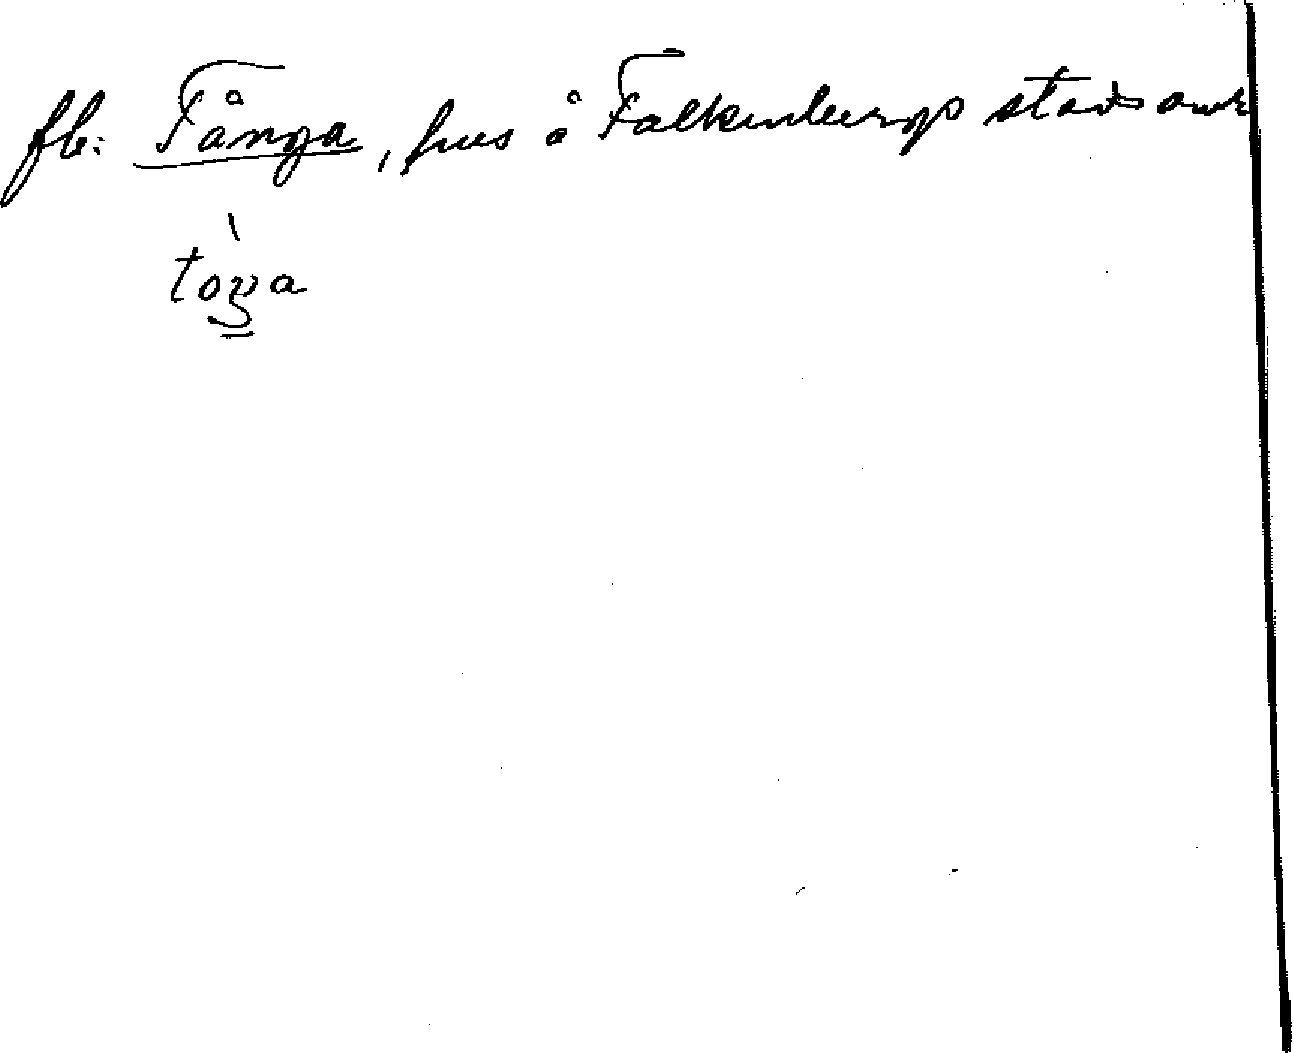 fb: Tånga, hus å Falkenbergs stads områ
toŋa